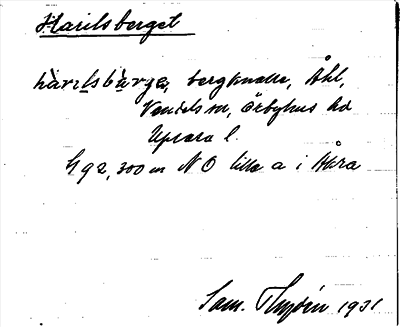 Harilsberget
hàrilsbùrgɛ, bergknalle, Åhl,
Vendels sn, Örbyhus hd
Upsala l.
h 92, 300 m NO lilla a i Åkra
Sam. 1931